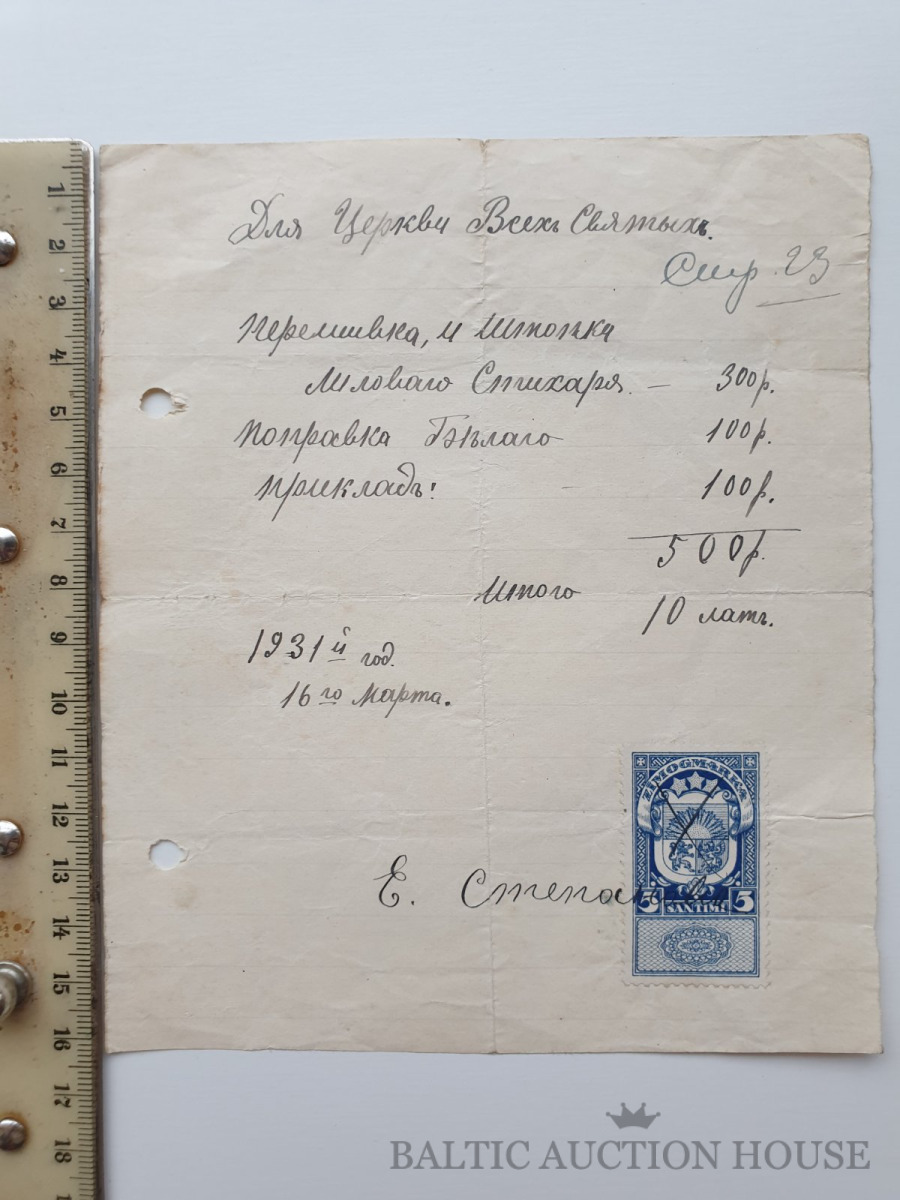 Для Церкви Всехъ Святыхъ.
Стр. 23
Перешивка, и Штопка
Лиловаго Стихаря. — 300р.
Поправка Бѣлаго 100р.
Прикладъ: – 100р.
500р.
Итого 10 латъ.
1931й год.
16го Марта.
ZIMOGMARKA
Е.
5 SANTIMI 5
1
2
3
4
5
6
7
8
9
10
11
12
13
14
15
16
17
18
BALTIC AUCTION HOUSE